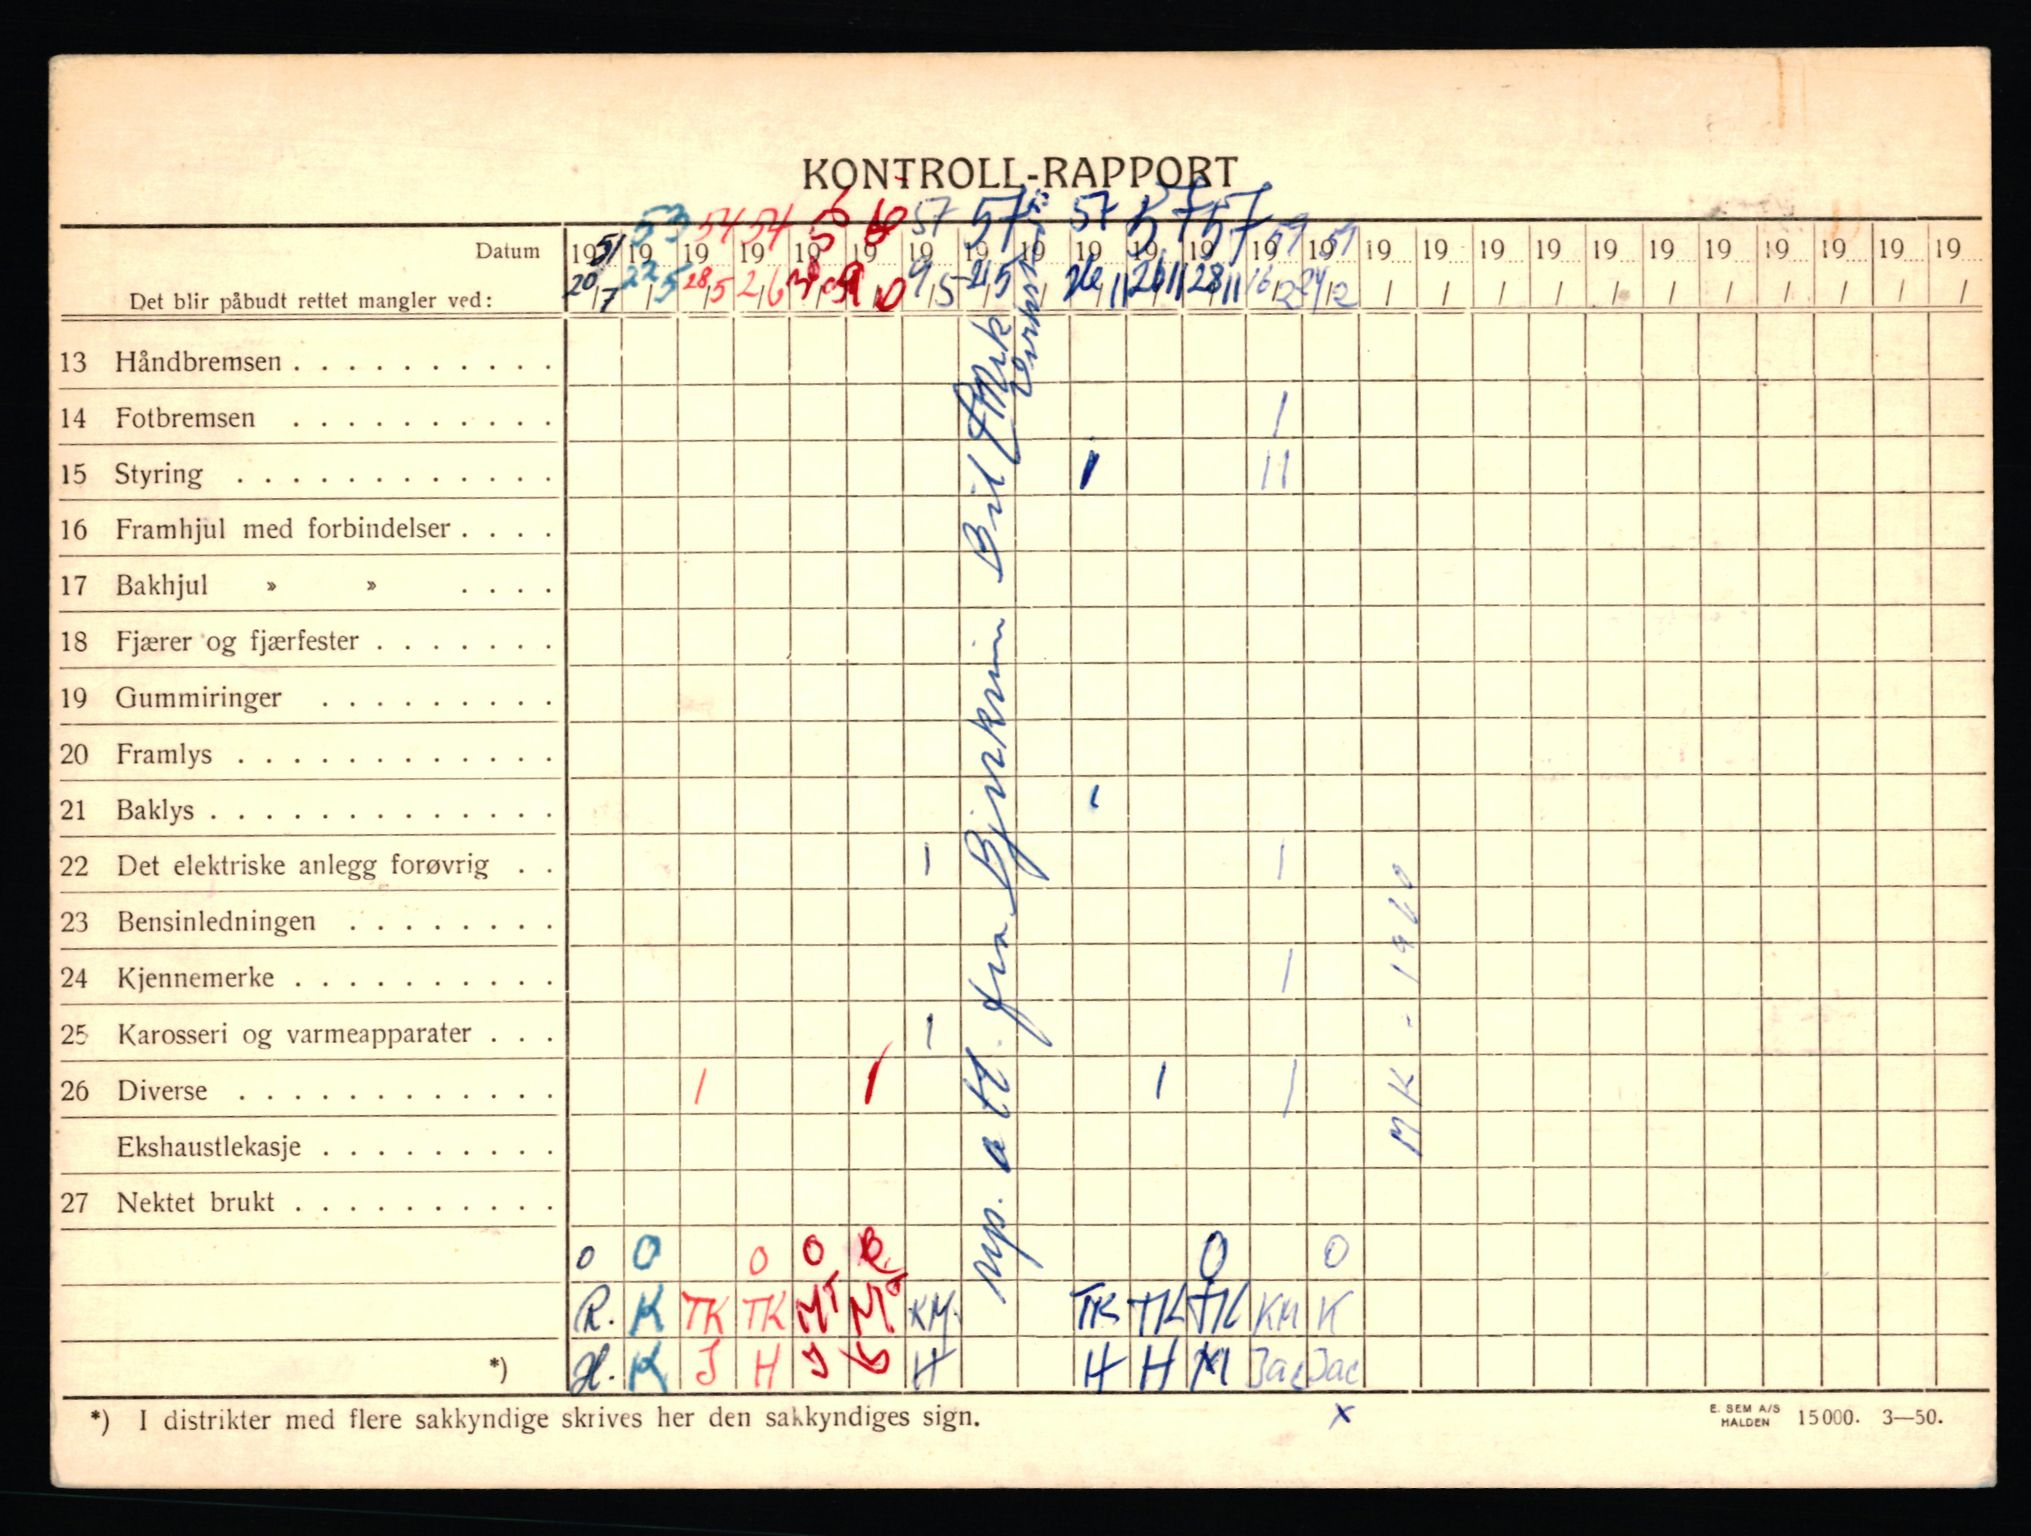 KONTROLL-RAPPORT
53 54 54 56 57 57 57 57 57 59 59
Datum 1951 19 19 19 19 19 19 19 19 19 19 19 19 19 19 19 19 19 19 19 19 19 19 19 19
Det blir påbudt rettet mangler ved: 20/7 22/5 28/5 2/6 9/5 21/5 26/11 26/11 28/11 16/12 24/12 / / / / / / / / / / /
13 Håndbremsen . . . . . . . . . .
14 Fotbremsen . . . . . . . . . . 1
15 Styring . . . . . . . . . . . . 1 11
16 Framhjul med forbindelser . . . .
17 Bakhjul » » . . . .
18 Fjærer og fjærfester . . . . . . .
19 Gummiringer . . . . . . . . .
20 Framlys . . . . . . . . . . . .
21 Baklys . . . . . . . . . . . . . 1
22 Det elektriske anlegg forøvrig . . 1 1
23 Bensinledningen . . . . . . . .
24 Kjennemerke . . . . . . . . . . 1
25 Karosseri og varmeapparater . . . 1
26 Diverse . . . . . . . . . . . . 1 1 1 1
Ekshaustlekasje . . . . . . . . .
27 Nektet brukt . . . . . . . . . .
rep. att. fra Bjerkreim Bil & Mek
MK - 1960
O O O O O O
R. K TK TK MT KM. TK TK TK KM K
*) H. K J H H H H Jac Jac
*) I distrikter med flere sakkyndige skrives her den sakkyndiges sign.
x
E. SEM A/S
HALDEN 15000. 3—50.